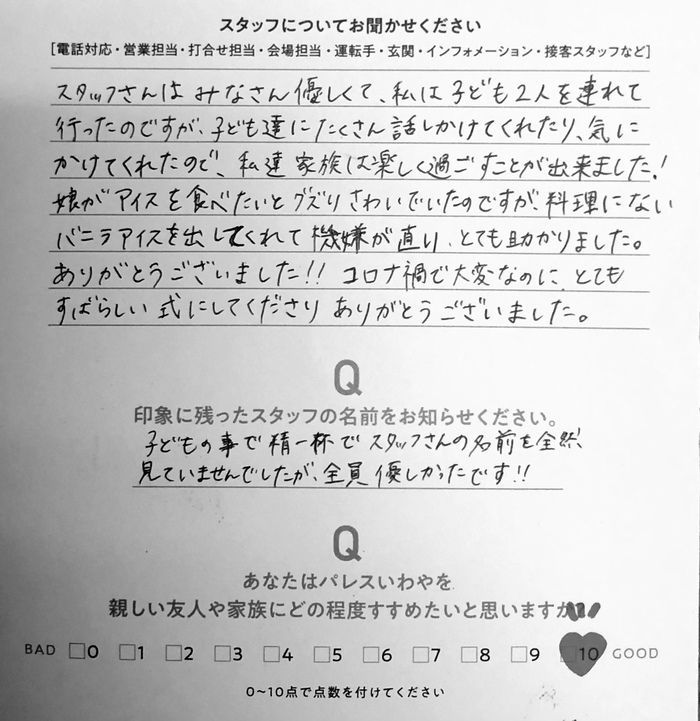 スタッフについてお聞かせください
[電話対応・営業担当・打合せ担当・会場担当・運転手・玄関・インフォメーション・接客スタッフなど]
スタッフさんはみなさん優しくて、私は子ども2人を連れて
行ったのですが、子ども達にたくさん話しかけてくれたり、気に
かけてくれたので、私達家族は楽しく過ごすことが出来ました!
娘がアイスを食べたいとグズりさわいでいたのですが、料理にない
バニラアイスを出してくれて機嫌が直り、とても助かりました。
ありがとうございました!! コロナ禍で大変なのに、とても
すばらしい式にしてくださりありがとうございました。
Q
印象に残ったスタッフの名前をお知らせください。
子どもの事で精一杯でスタッフさんの名前を全然、
見ていませんでしたが、全員優しかったです!!
Q
あなたはパレスいわやを
親しい友人や家族にどの程度すすめたいと思いますか
BAD □0 □1 □2 □3 □4 □5 □6 □7 □8 □9 □10 GOOD
0〜10点で点数を付けてください